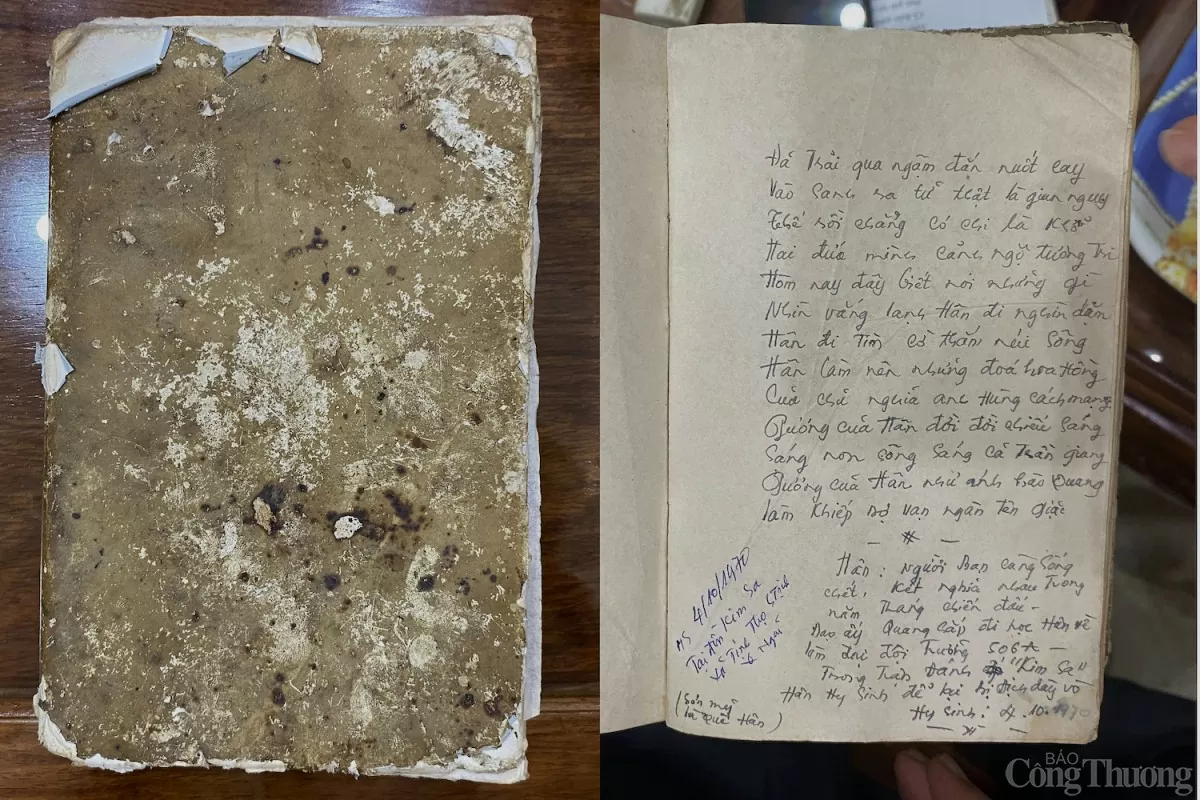 Đã Trải qua ngậm đắng nuốt cay
Vào sanh ra tử thật là gian nguy
Thế rồi chẳng có chi là Khổ
Hai đứa mình cảnh ngộ tương tri
Hôm nay đây biết nói những gì
Nhìn vắng lạnh Hân đi nghìn dặm
Hân đi Tìm cỏ thắm núi Sông
Hân làm nên những đoá hoa Hồng
Của chủ nghĩa anh Hùng cách mạng
Gương của Hân đời đời chiếu Sáng
Sáng non Sông Sáng cả Trần gian
Gương của Hân như ánh hào Quang
làm Khiếp sợ vạn ngàn Tên giặc
Hân : Người Bạn cùng Sống
chết, Kết nghĩa nhau Trong
năm Tháng chiến đấu -
Đạo ấy Quang cấp đi học Hân về
làm đại đội Trưởng 506A -
Trong Trận Đánh "Kim Sa"
Hân Hy Sinh để lại bị địch
Hy Sinh : 4.10.1970
HS 4/10/1970
Tại Kim Sa
xã Tịnh Thọ S Tịnh
Q Ngãi
(Sơn mỹ
là Quê Hân)
BÁO
Công Thương